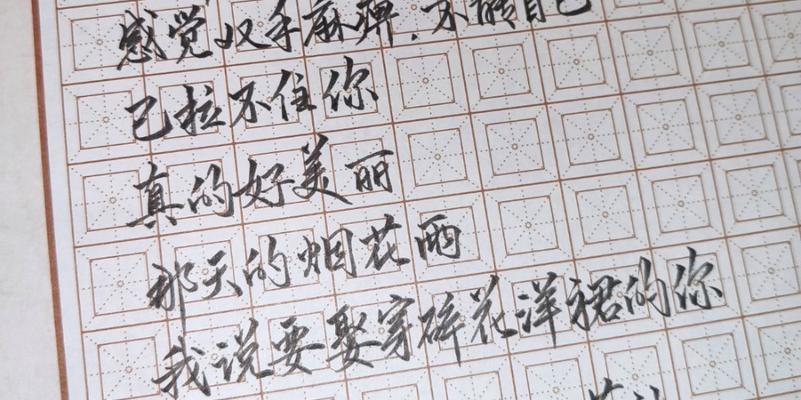 感觉双手麻痹，不能自己
已拉不住你
真的好美丽
那天的烟花雨
我说要娶穿碎花洋裙的你